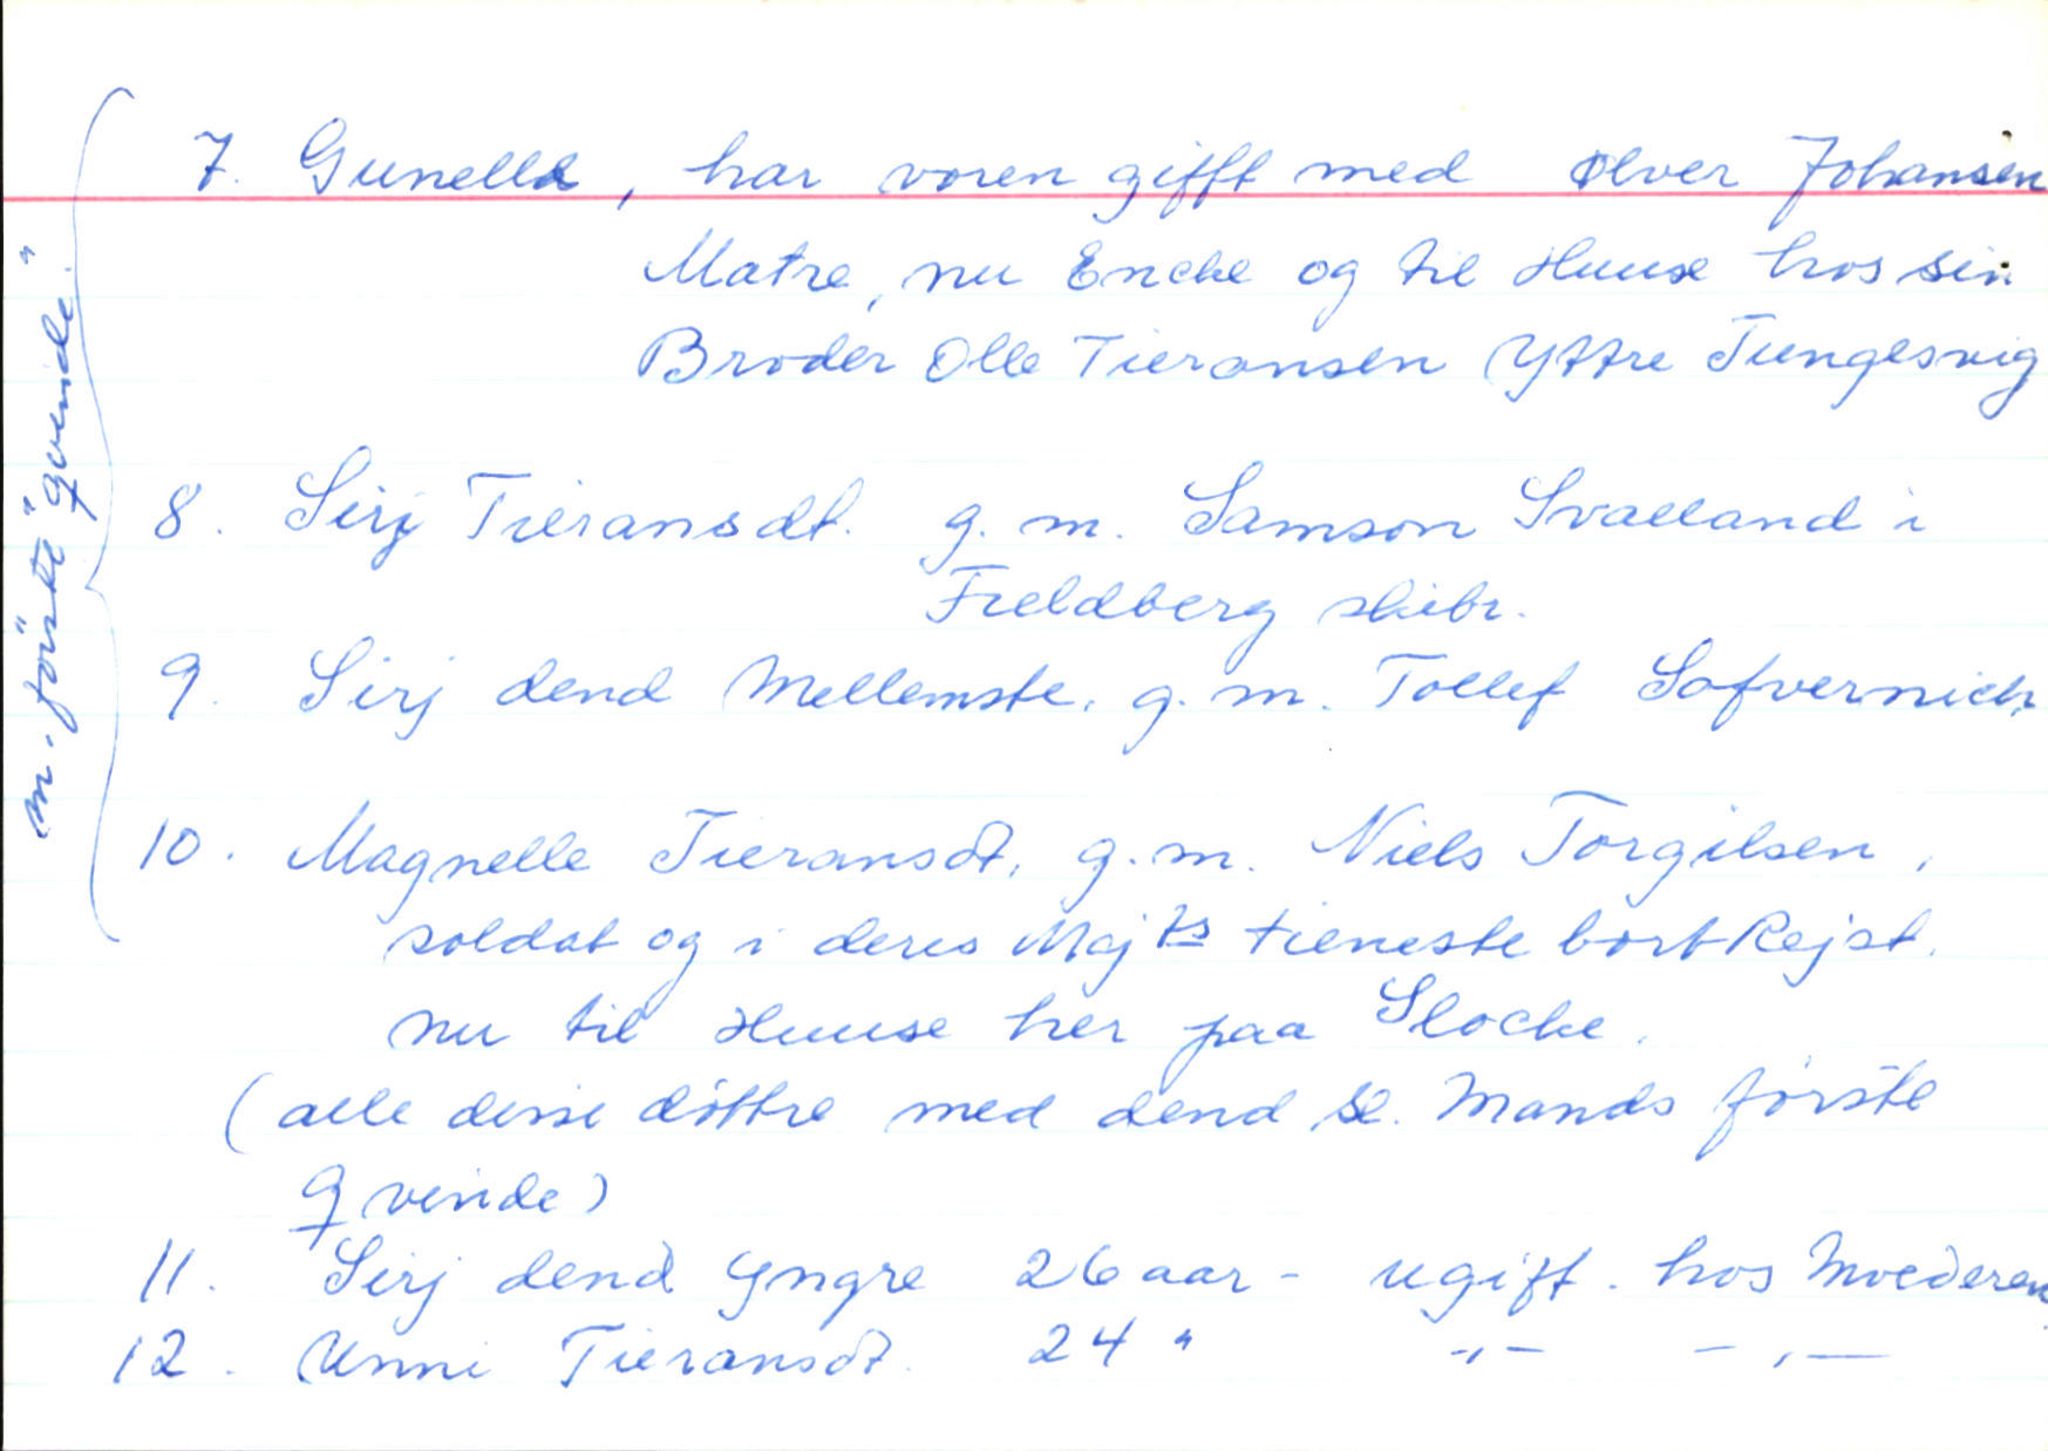 m. første "qvinde."
7. Gunella, har voren gifft med Olver Johansen
Matre, nu Encke og til Huuse hos sin
Broder Olle Tieransen Yttre Tungesvig
8. Sirj Tieransdt. g. m. Samson Svalland i
Fieldberg skibr.
9. Sirj dend Mellemste. g. m. Tollef Sofvernich
10. Magnelle Tieransdt, g. m. Niels Torgilsen,
soldat og i deres Majts tieneste bort Rejst.
nu til Huuse her paa Slocke.
(alle disse döttre med dend Sl. Mands förste
Qvinde)
11. Sirj dend Yngre 26 aar - ugift. hos Moederen
12. Unni Tieransdt. 24 " -"- -"-